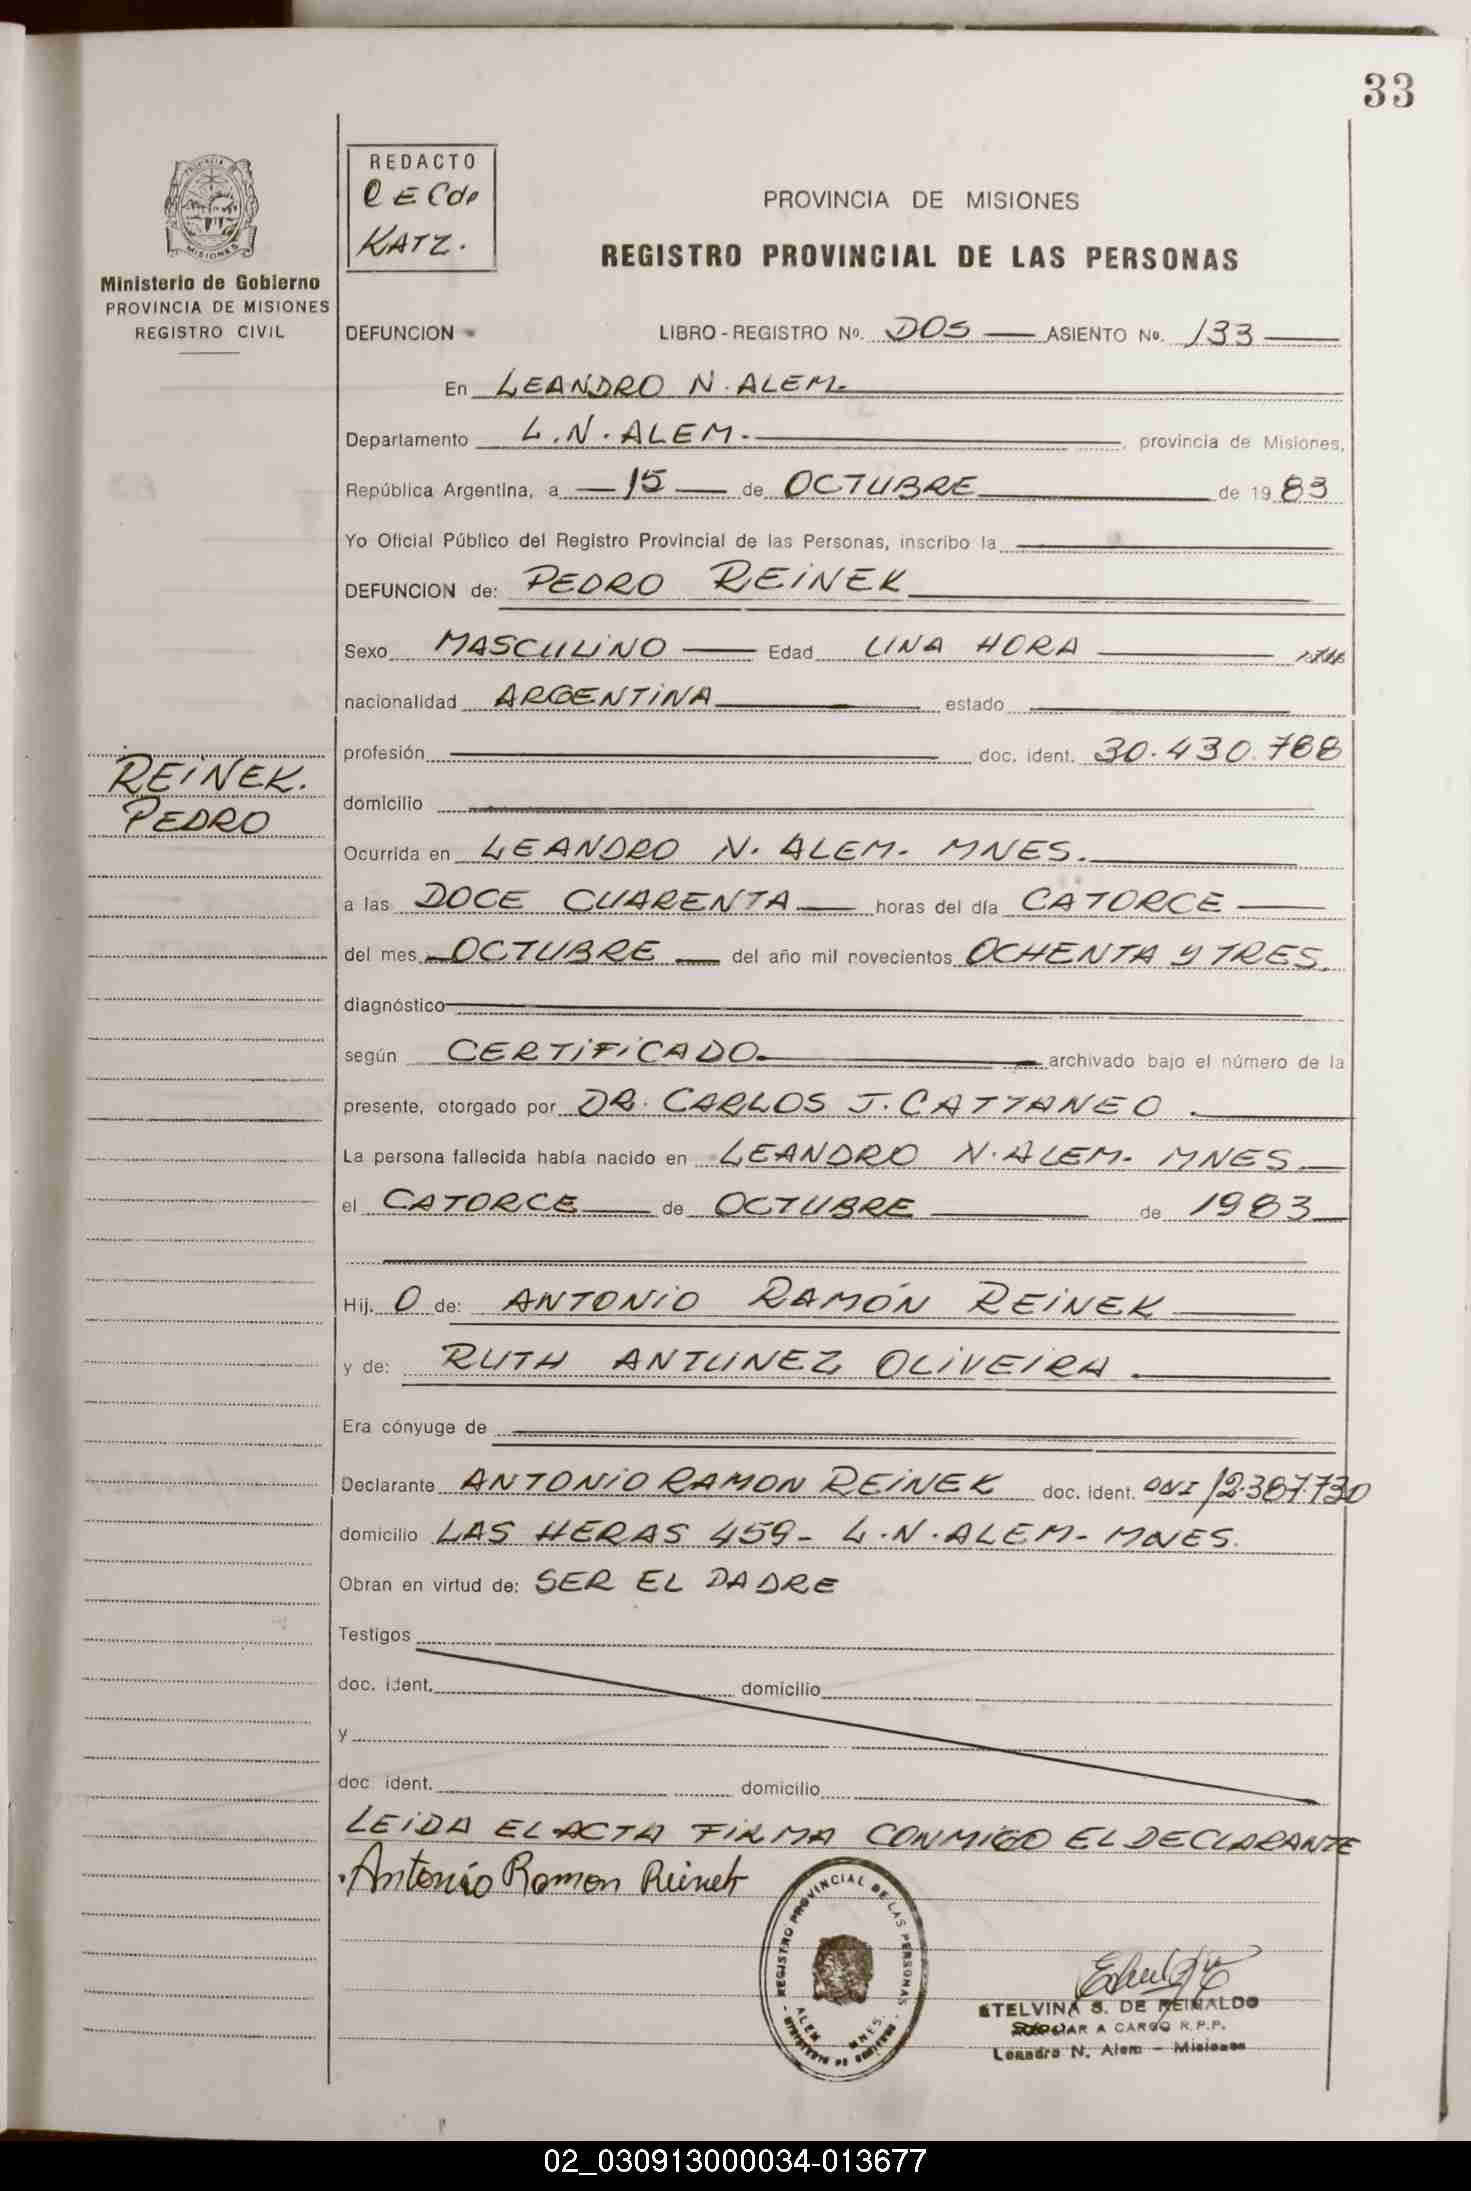 33
PROVINCIA
MISIONES
Ministerio de Gobierno
PROVINCIA DE MISIONES
REGISTRO CIVIL
REDACTO
KATZ.
PROVINCIA DE MISIONES
REGISTRO PROVINCIAL DE LAS PERSONAS
DEFUNCION LIBRO - REGISTRO No. DOS ASIENTO No. 133
En LEANDRO N. ALEM.
Departamento L.N. ALEM. , provincia de Misiones,
República Argentina, a 15 de OCTUBRE de 19 83
Yo Oficial Público del Registro Provincial de las Personas, inscribo la
DEFUNCION de: PEDRO REINEK
Sexo MASCULINO Edad UNA HORA
nacionalidad ARGENTINA estado
profesión doc. ident. 30.430.788
REINEK.
PEDRO
domicilio
Ocurrida en LEANDRO N. ALEM. MNES.
a las DOCE CUARENTA horas del día CATORCE
del mes OCTUBRE del año mil novecientos OCHENTA Y TRES.
diagnóstico
según CERTIFICADO. archivado bajo el número de la
presente, otorgado por DR. CARLOS J. CATTANEO.
La persona fallecida había nacido en LEANDRO N. ALEM. MNES.
el CATORCE de OCTUBRE de 1983
Hij. O de: ANTONIO RAMÓN REINEK
y de: RUTH ANTUNEZ OLIVEIRA.
Era cónyuge de
Declarante ANTONIO RAMON REINEK doc. ident. DNI 12.387.730
domicilio LAS HERAS 459- L.N. ALEM- MNES.
Obran en virtud de: SER EL PADRE
Testigos
doc. ident. domicilio
y
doc ident. domicilio
LEIDA EL ACTA FIRMA CONMIGO EL DECLARANTE
Antonio Ramon Reinek
REGISTRO PROVINCIAL DE LAS PERSONAS
ALEM MNES.
ETELVINA S. DE REINALDO
A CARGO R.P.P.
Leandro N. Alem - Misiones
02_030913000034-013677